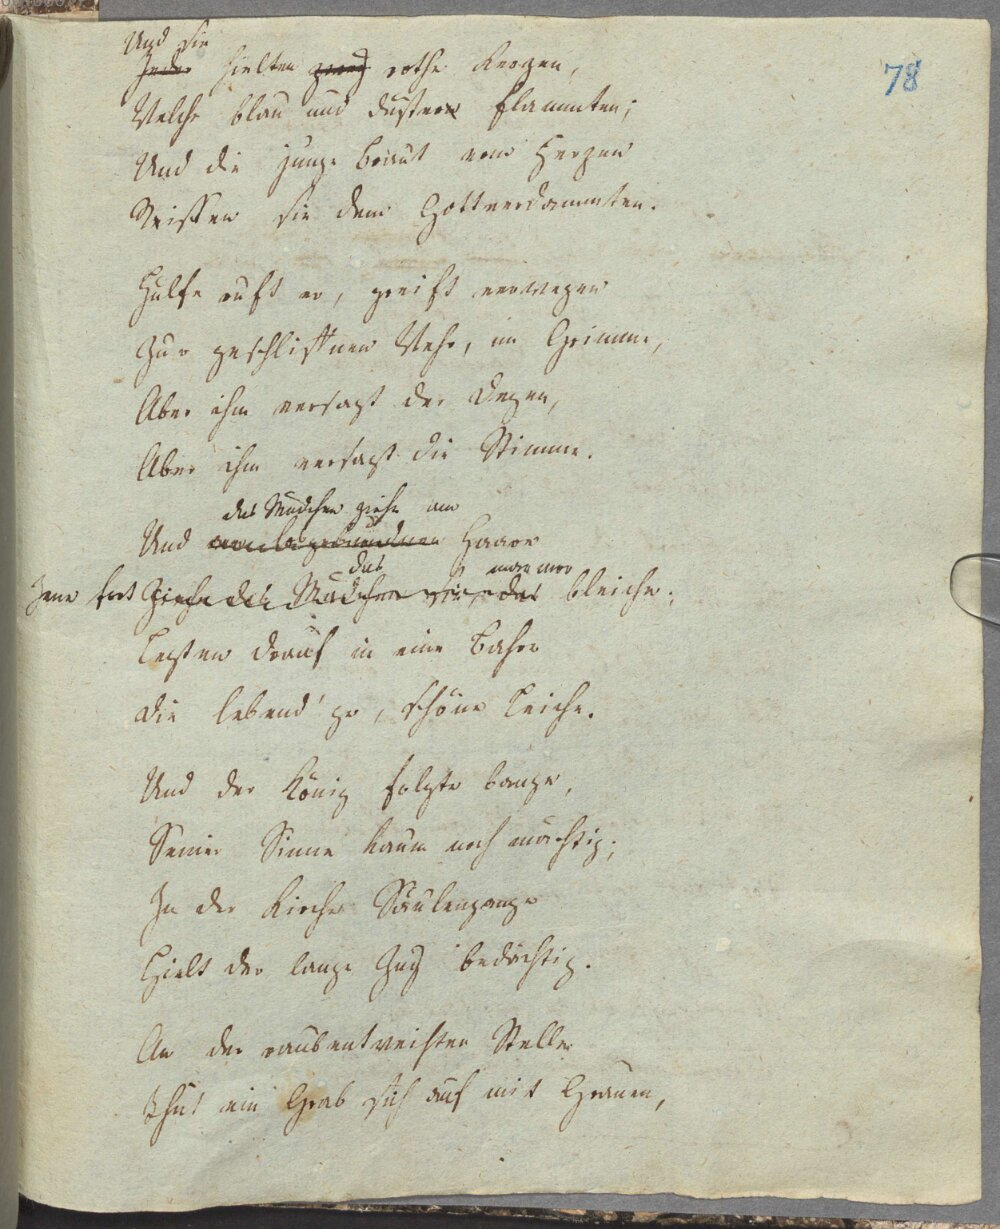 78
Und sie
Jeder hielten zwey rothe Kerzen,
Welche blau und düster flammten;
Und die junge Braut vom Herzen
Reissen sie dem Gottverdammten.
Hülfe ruft er, greift verwegen
Zur geschliffnen Wehr, im Grimme,
Aber ihm versagt der Degen,
Aber ihm versagt die Stimme.
das Mädchen ziehn am
Und Haare
das marmor
Jene fort Ziehn das Mädchen sie, das bleiche;
Legten drauf in eine Bahre
Die lebend'ge, schöne Leiche.
Und der König folgte bange,
Seiner Sinne kaum noch mächtig;
In der Kirche Säulengange
Hielt der lange Zug bedächtig.
An der raubentweihten Stelle
Thut ein Grab sich auf mit Grauen,